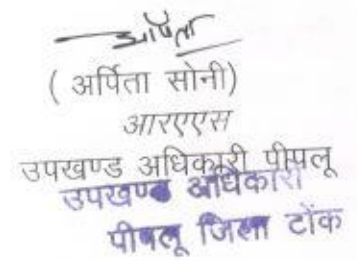 अर्पिता
( अर्पिता सोनी)
आरएएस
उपखण्ड अधिकारी पीपलू
उपखण्ड अधिकारी
पीपलू जिला टोंक